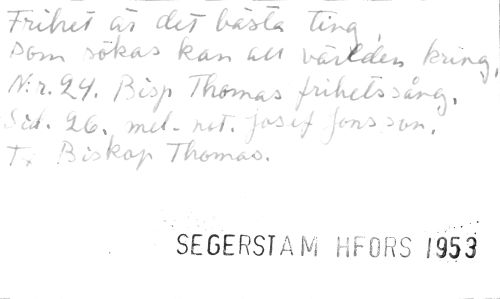 Frihet är det bästa ting,
som sökas kan all världen kring,
Nr. 24. Bisp Thomas frihetssång.
Sid. 26. mel.- not. Josef Jonsson.
T: Biskop Thomas.
SEGERSTAM HFORS 1953